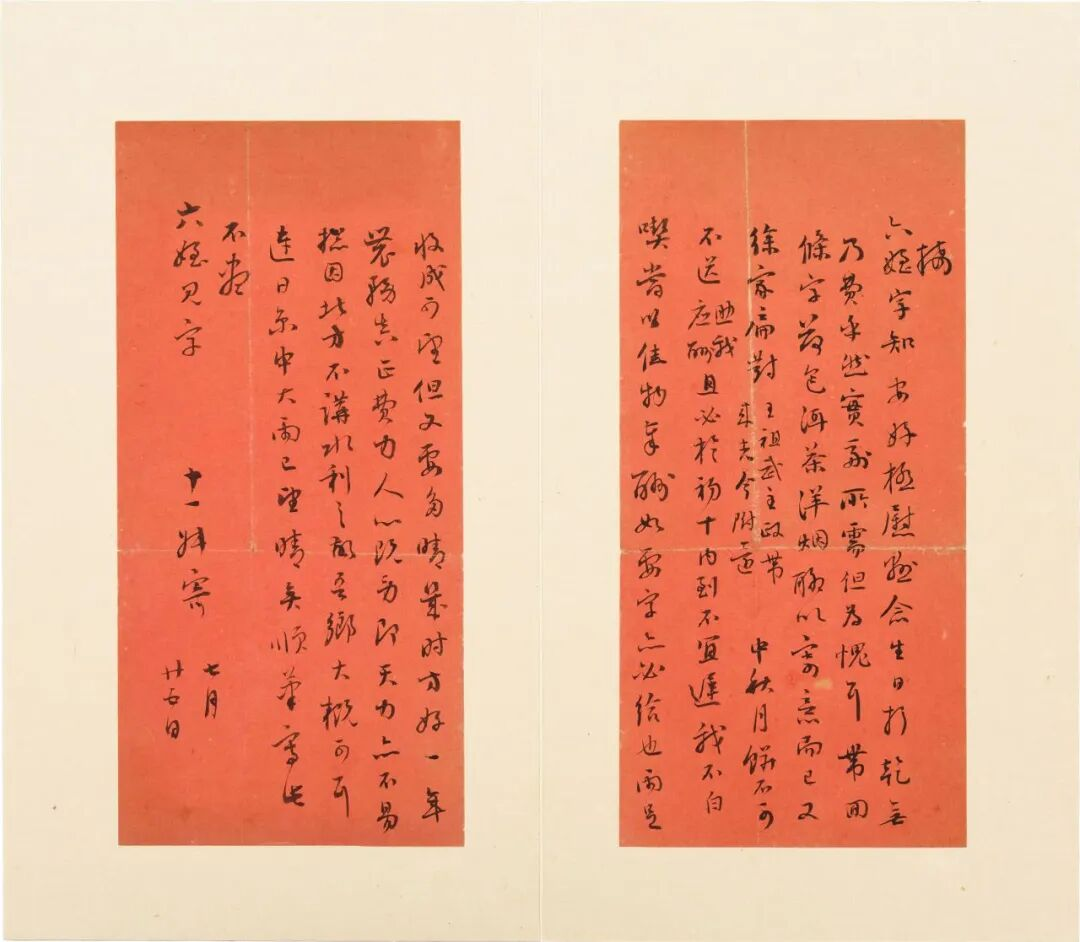 接
六姪字知安好極慰懸念生日打乾無
乃費乎然實副所需但為愧耳帶回
條字荷包洱茶洋烟聊以寄意而已又
徐家扁對王祖武主政帶
來去今附還中秋月餅不可
不送
应酬且必於初十内到不宜遲我不白
喫當以佳物奉酬如要字亦必給也雨足
收成可望但又要多晴幾时方好一年
農務真正費力人心既勞即天力亦不易
摠因北方不講水利之故吾鄉大概可耳
連日京中大雨已望晴矣順筆寄此
不盡
六姪見字
十一叔寄
七月
廿五日